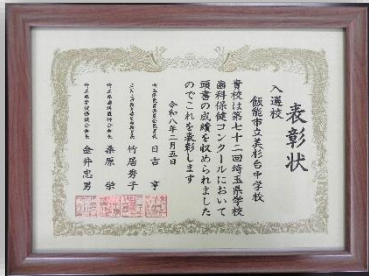 表彰状
入選校
飯能市立美杉台中学校
貴校は第七十二回埼玉県学校
歯科保健コンクールにおいて
頭書の成績を収められました
のでこれを表彰します
令和八年二月五日
日吉 亨
竹居秀子
桑原 栄
金井忠男